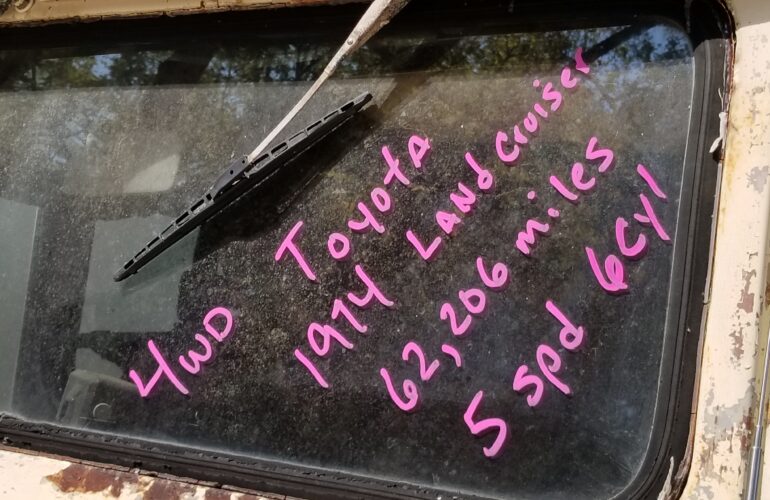 4WD Toyota
1974 Land Cruiser
62,206 miles
5 spd 6cyl